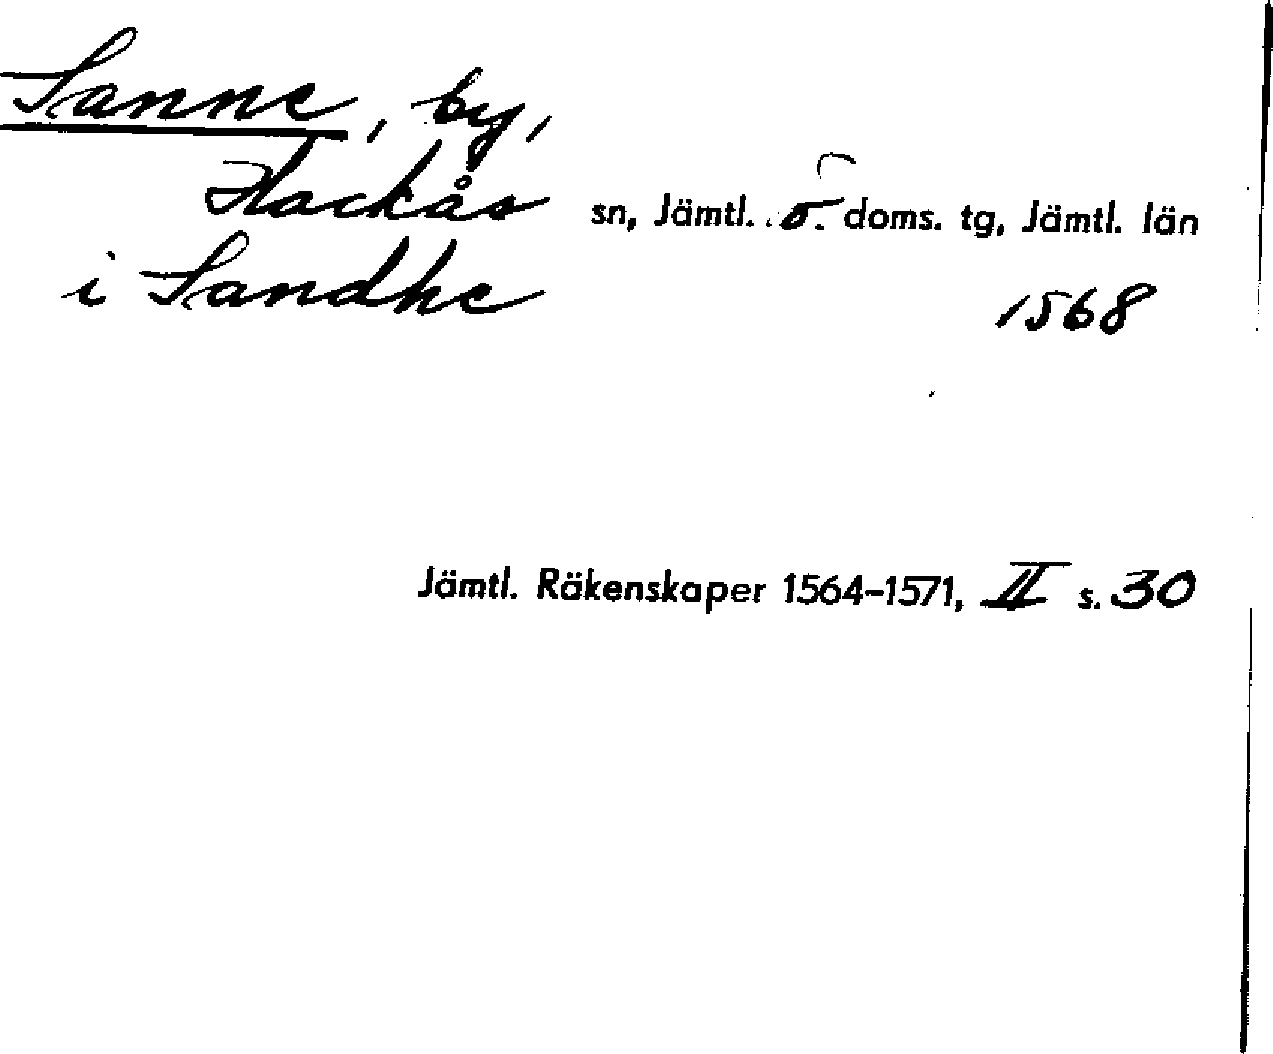 Sanne, by,
Hackås sn, Jämtl. ö. doms. tg, Jämtl. län
i Sandhe 1568
Jämtl. Räkenskaper 1564-1571, II s. 30